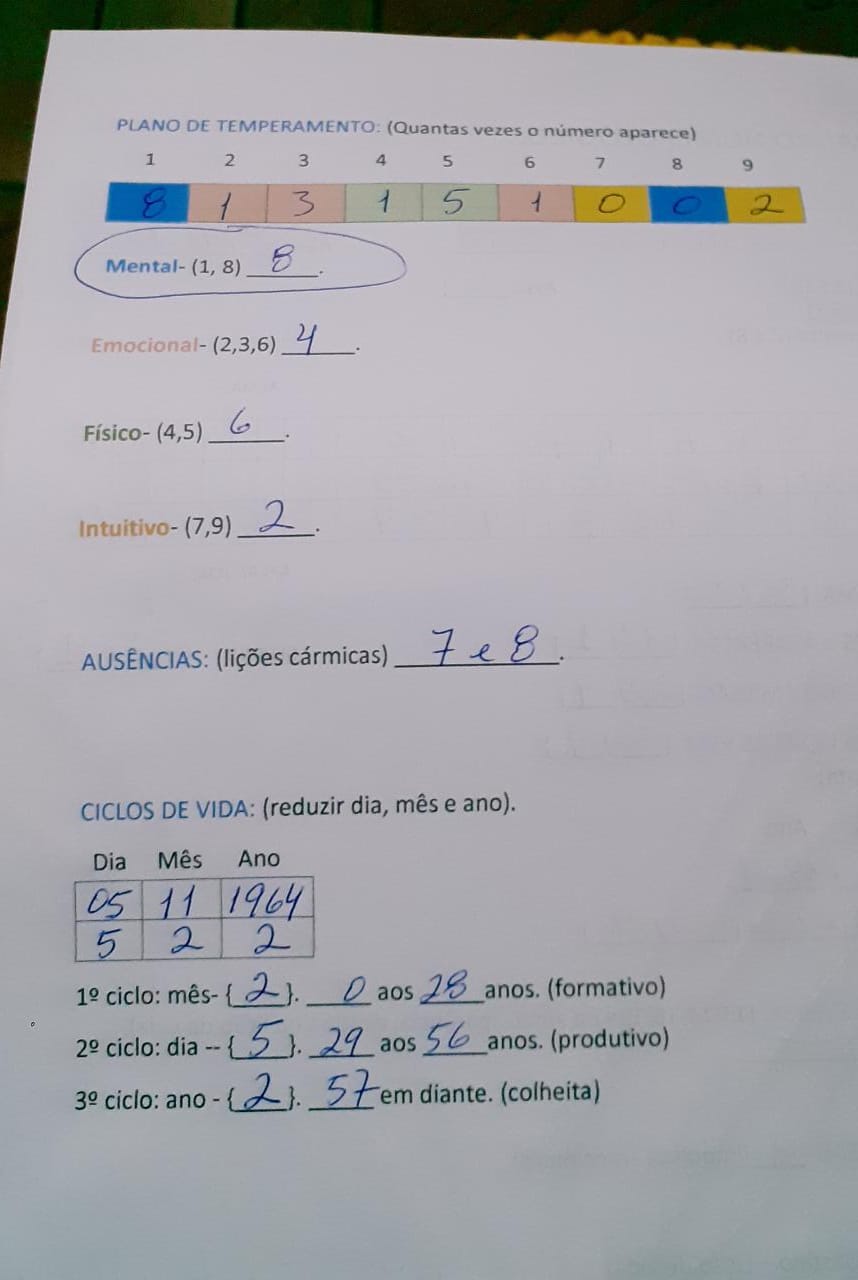 PLANO DE TEMPERAMENTO: (Quantas vezes o número aparece)
1 2 3 4 5 6 7 8 9
8 1 3 1 5 1 0 0 2
Mental- (1, 8) 8.
Emocional- (2,3,6) 4.
Físico- (4,5) 6.
Intuitivo- (7,9) 2.
AUSÊNCIAS: (lições cármicas) 7 e 8.
CICLOS DE VIDA: (reduzir dia, mês e ano).
Dia Mês Ano
05 11 1964
5 2 2
1º ciclo: mês- {2}. 0 aos 28 anos. (formativo)
2º ciclo: dia -- {5}. 29 aos 56 anos. (produtivo)
3º ciclo: ano - {2}. 57 em diante. (colheita)